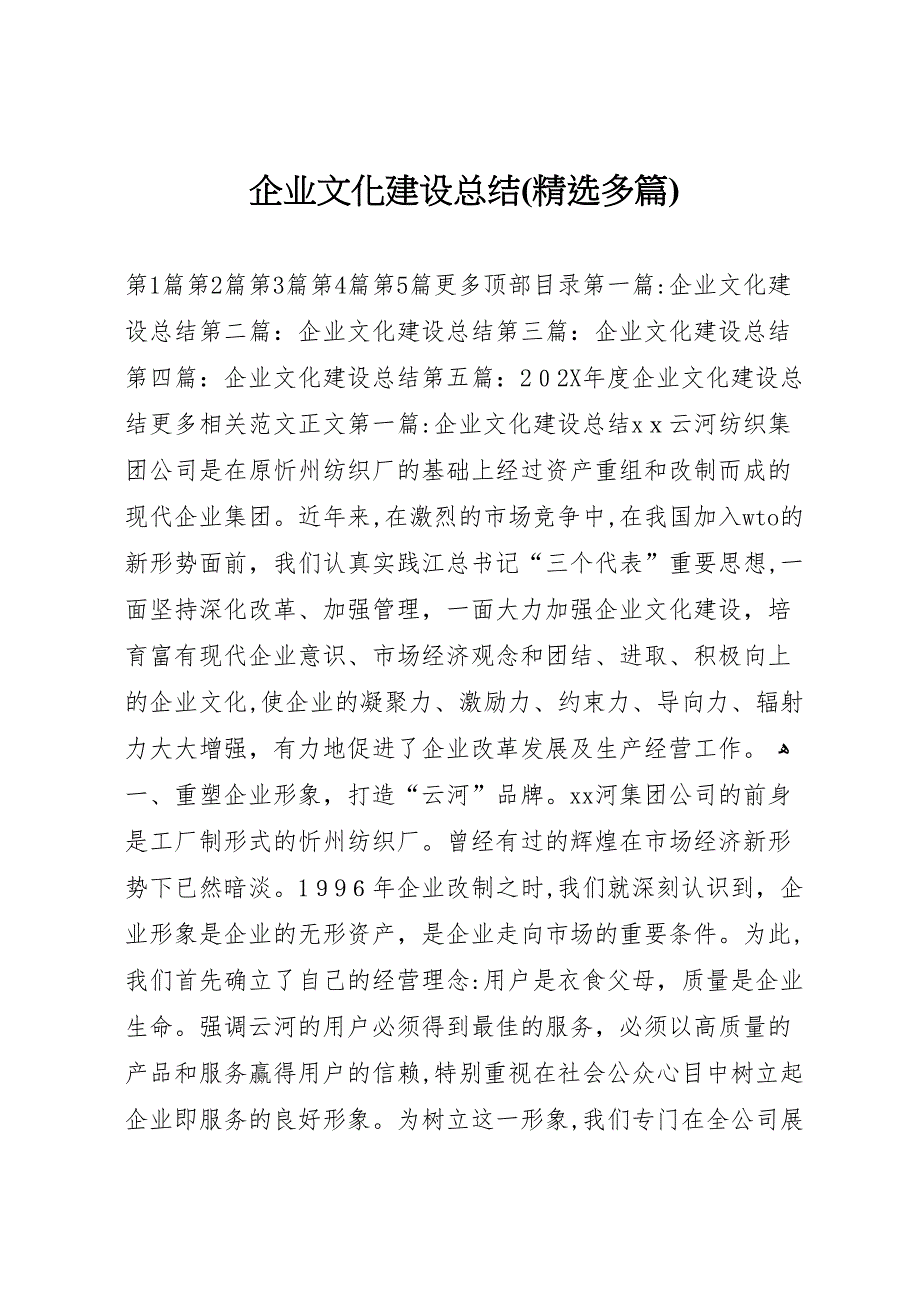 企业文化建设总结(精选多篇)
第1篇第2篇第3篇第4篇第5篇更多顶部目录第一篇:企业文化建
设总结第二篇：企业文化建设总结第三篇：企业文化建设总结
第四篇：企业文化建设总结第五篇：２０2X年度企业文化建设总
结更多相关范文正文第一篇:企业文化建设总结xｘ云河纺织集
团公司是在原忻州纺织厂的基础上经过资产重组和改制而成的
现代企业集团。近年来,在激烈的市场竞争中,在我国加入wto的
新形势面前，我们认真实践江总书记“三个代表”重要思想,一
面坚持深化改革、加强管理，一面大力加强企业文化建设，培
育富有现代企业意识、市场经济观念和团结、进取、积极向上
的企业文化,使企业的凝聚力、激励力、约束力、导向力、辐射
力大大增强，有力地促进了企业改革发展及生产经营工作。ﻫ
一、重塑企业形象，打造“云河”品牌。xx河集团公司的前身
是工厂制形式的忻州纺织厂。曾经有过的辉煌在市场经济新形
势下已然暗淡。１９９６年企业改制之时,我们就深刻认识到，企
业形象是企业的无形资产，是企业走向市场的重要条件。为此,
我们首先确立了自己的经营理念:用户是衣食父母，质量是企业
生命。强调云河的用户必须得到最佳的服务，必须以高质量的
产品和服务赢得用户的信赖,特别重视在社会公众心目中树立起
企业即服务的良好形象。为树立这一形象,我们专门在全公司展